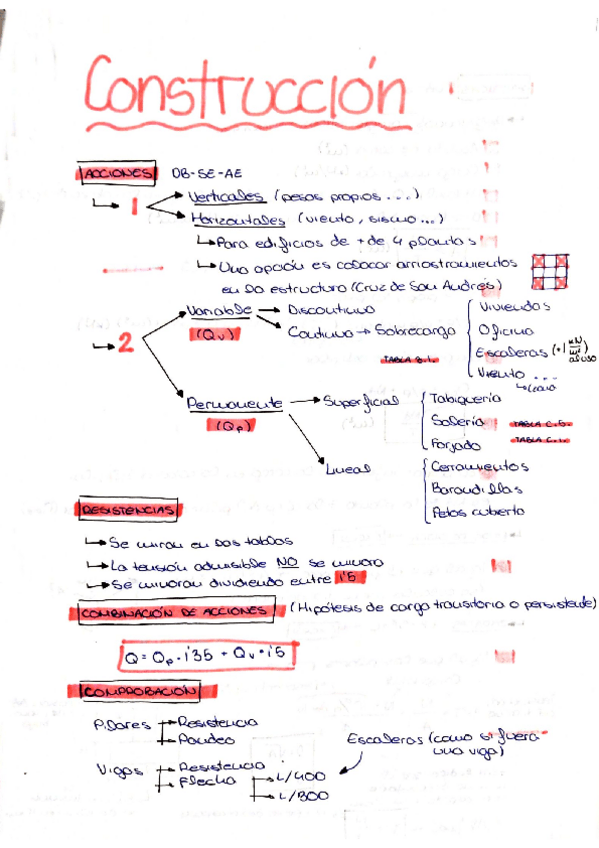 Construcción
ACCIONES DB-SE-AE
1 Verticales (pesos propios...)
Horizontales (viento, sismo...)
Para edificios de + de 4 plantas
Una opción es colocar arriostramientos
en la estructura (Cruz de San Andrés)
2 Variable (Qv) Discontinua
Continua → Sobrecarga
TABLA 3.1.
Viviendas
Oficina
Escaleras (+1 kN/m² al uso)
Viento ...
Permanente (Qp) Superficial
Tabiquería
Solería TABLA C.5.
Forjado TABLA C.1.
Lineal
Cerramientos
Barandillas
Petos cubierta
RESISTENCIAS
Se miran en las tablas
La tensión admisible NO se minora
Se minoran dividiendo entre 1'5
COMBINACIÓN DE ACCIONES (Hipótesis de carga transitoria o persistente)
Q = Qp · 1'35 + Qv · 1'5
COMPROBACIÓN
Pilares Resistencia
Pandeo
Escaleras (como si fuera
una viga)
Vigas Resistencia
Flecha L/400
L/300